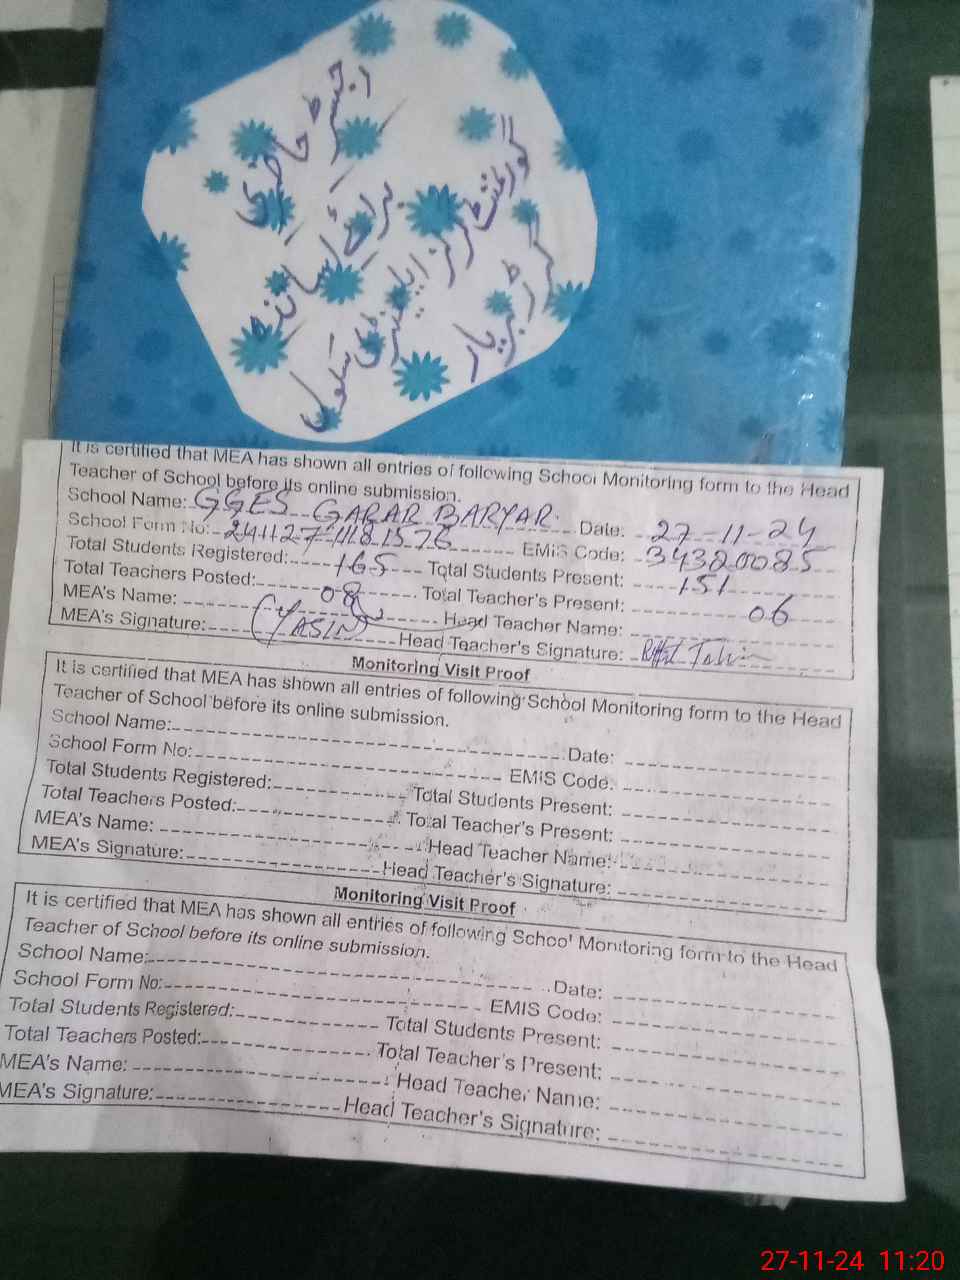 رجسٹر حاضری
برائے اساتذہ
گورنمنٹ گرلز ایلیمنٹری سکول
گرڑ بریار
It is certified that MEA has shown all entries of following School Monitoring form to the Head
Teacher of School before its online submission.
School Name: GGES GARAR BARYAR Date: 27-11-24
School Form No: 241127111181576 EMIS Code: 34320085
Total Students Registered: 165 Total Students Present: 151
Total Teachers Posted: 08 Total Teacher's Present: 06
MEA's Name: Head Teacher Name:
MEA's Signature: (YASIN) Head Teacher's Signature:
Monitoring Visit Proof
It is certified that MEA has shown all entries of following School Monitoring form to the Head
Teacher of School before its online submission.
School Name: Date:
School Form No: EMIS Code:
Total Students Registered: Total Students Present:
Total Teachers Posted: Total Teacher's Present:
MEA's Name: Head Teacher Name:
MEA's Signature: Head Teacher's Signature:
Monitoring Visit Proof
It is certified that MEA has shown all entries of following School Monitoring form to the Head
Teacher of School before its online submission.
School Name: Date:
School Form No: EMIS Code:
Total Students Registered: Total Students Present:
Total Teachers Posted: Total Teacher's Present:
MEA's Name: Head Teacher Name:
MEA's Signature: Head Teacher's Signature:
27-11-24 11:20